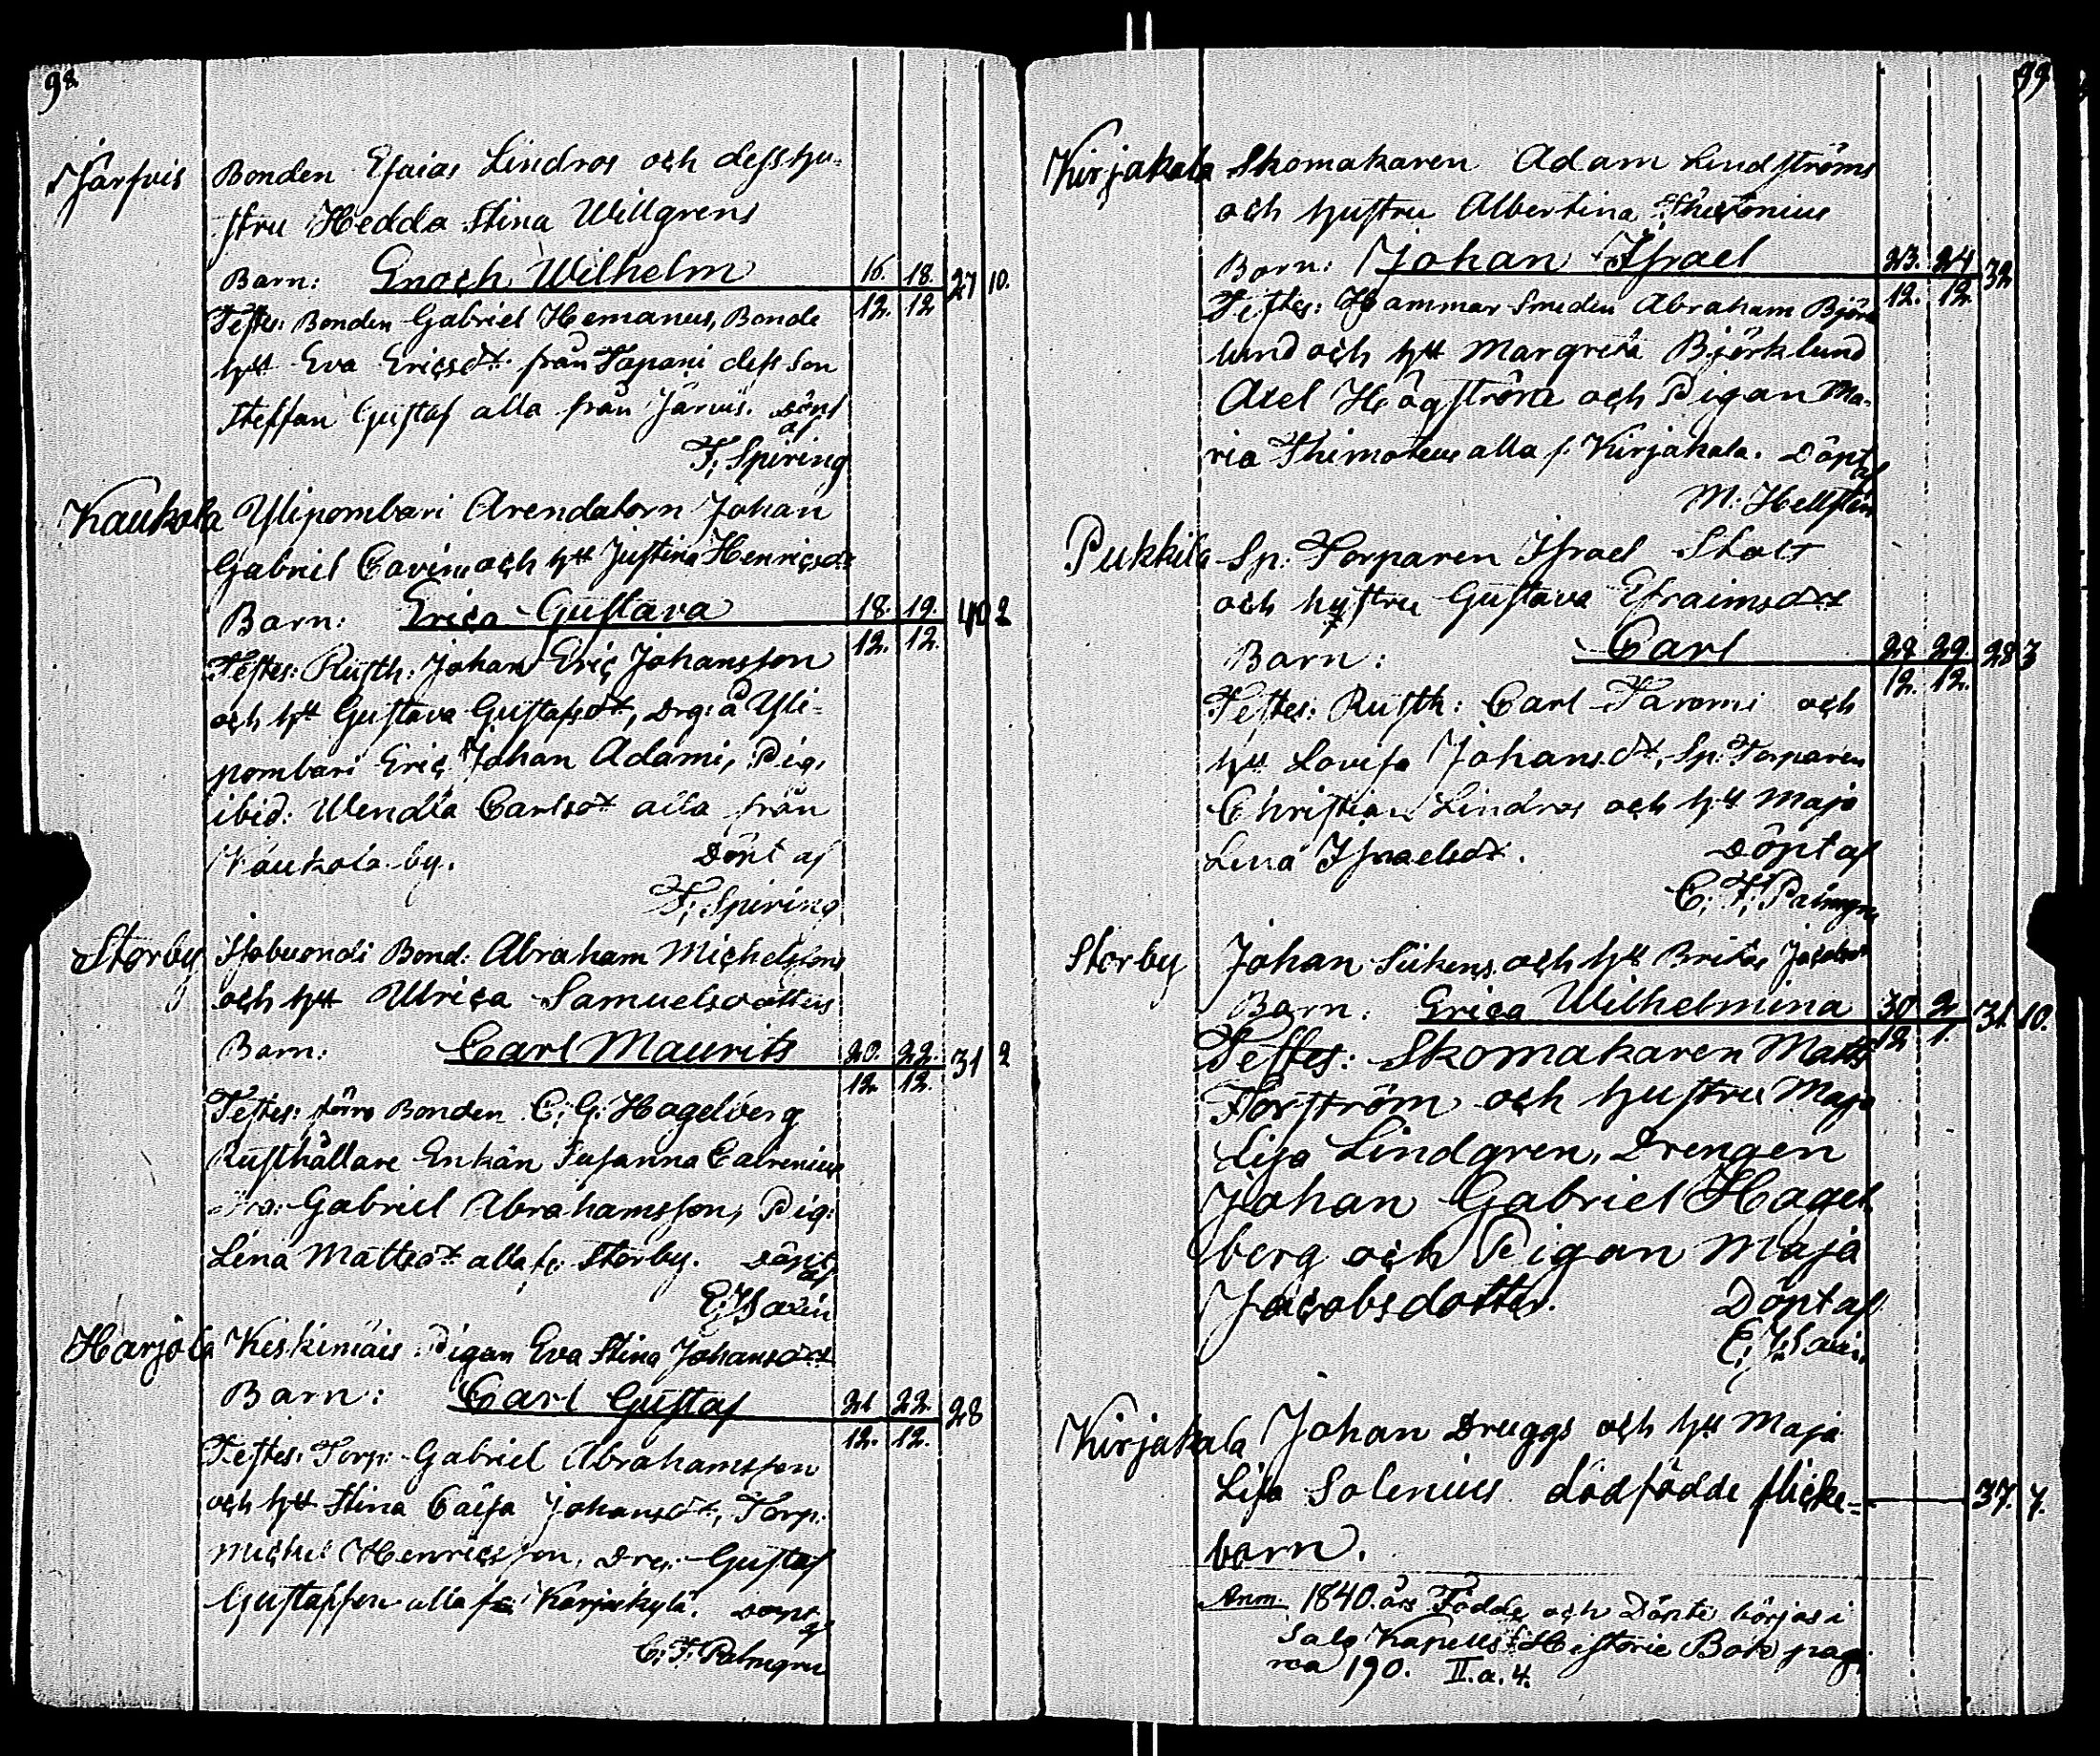 98
Järfvis Bonden Esaias Lindros och dess hu-
stru Hedda Stina Willgrens
Barn: Enoch Wilhelm 16. 18. 27 10.
12. 12
Testes: Bonden Gabriel Hemanus, Bonde
hu Eva Ericsdr från Tapani dess Son
Steffan Gustaf alla från Järvis. Döpt
af
F: Spiring
Kaukola Ylipombari Arendatorn Johan
Gabriel och hu Justina Henricsdr
Barn: Erica Gustava 18. 19. 40 2
12. 12.
Testes: Rusth: Johan Eric Johansson
och hu Gustava Gustafsdr, Drg: å Yli-
pombari Eric Johan Adami, Pig.
ibid: Wendla Carlsdr alla från
Kaukola by. Döpt af
F: Spiring
Storby Bond: Abraham Michelssons
och hu Ulrica Samuelsdotters
Barn: Carl Maurits 20. 22. 31 2
12. 12.
Testes: förre Bonden C: G: Hagelberg
Rusthållare Enkan Susanna
Drg: Gabriel Abrahamsson, Pig:
Lena Mattsdr alla fr: Storby. Döpt
af
E: J: Savin
Harjola Keskinäis. Pigan Eva Stina Johansdr
Barn: Carl Gustaf 21 22. 28
12. 12.
Testes: Torp: Gabriel Abrahamsson
och hu Stina Caisa Johansdr, Torp:
Michel Henricsson, Drg: Gustaf
Gustafsson alla fr: Karjaskylä. Döpt
af
C: F: Palmgren
99
Kirjakala Skomakaren Adam Lindströms
och hustru Albertina
Barn: Johan Israel 23. 24 32
12. 12.
Testes: Hammar Smeden Abraham Björk
lund och hu Margreta Björklund
Axel Högström och Pigan Ma-
ria Thimoteus alla f. Kirjakala. Döpt
af
M: Hellsten
Pukkila Sp: Torparen Israel Stolt
och hustru Gustava Efraimsdr
Barn: Carl 28 29. 28 3
12. 12.
Testes: Rusth: Carl Taromi och
hu Lovisa Johansdr, Sp: Torparen
Christian Lindros och hu Maja
Lena Israelsdr. Döpt af
C: F: Palmgren
Storby Johan och hu Brita
Barn: Erica Wilhelmina 30 2. 31. 10.
12 1.
Testes: Skomakaren Matts
Forström och hustru Maja
Lisa Lindgren, Drengen
Johan Gabriel Hagel-
berg och Pigan Maja
Jacobsdotter. Döpt af
E: J: Savin.
Kirjakala Johan Druggs och hu Maja
Lisa Solenius dödfödde flicke- 37. 7.
barn.
Anm. 1840. års Födde och Döpte börjas i
Salo Kapells Historie Bok pag:
na 190. II. a. 4.